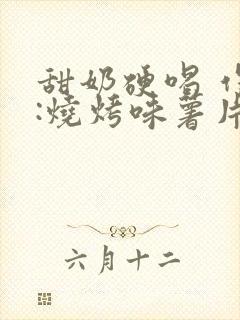 甜奶硬唱
:燒烤味薯片
六月十二